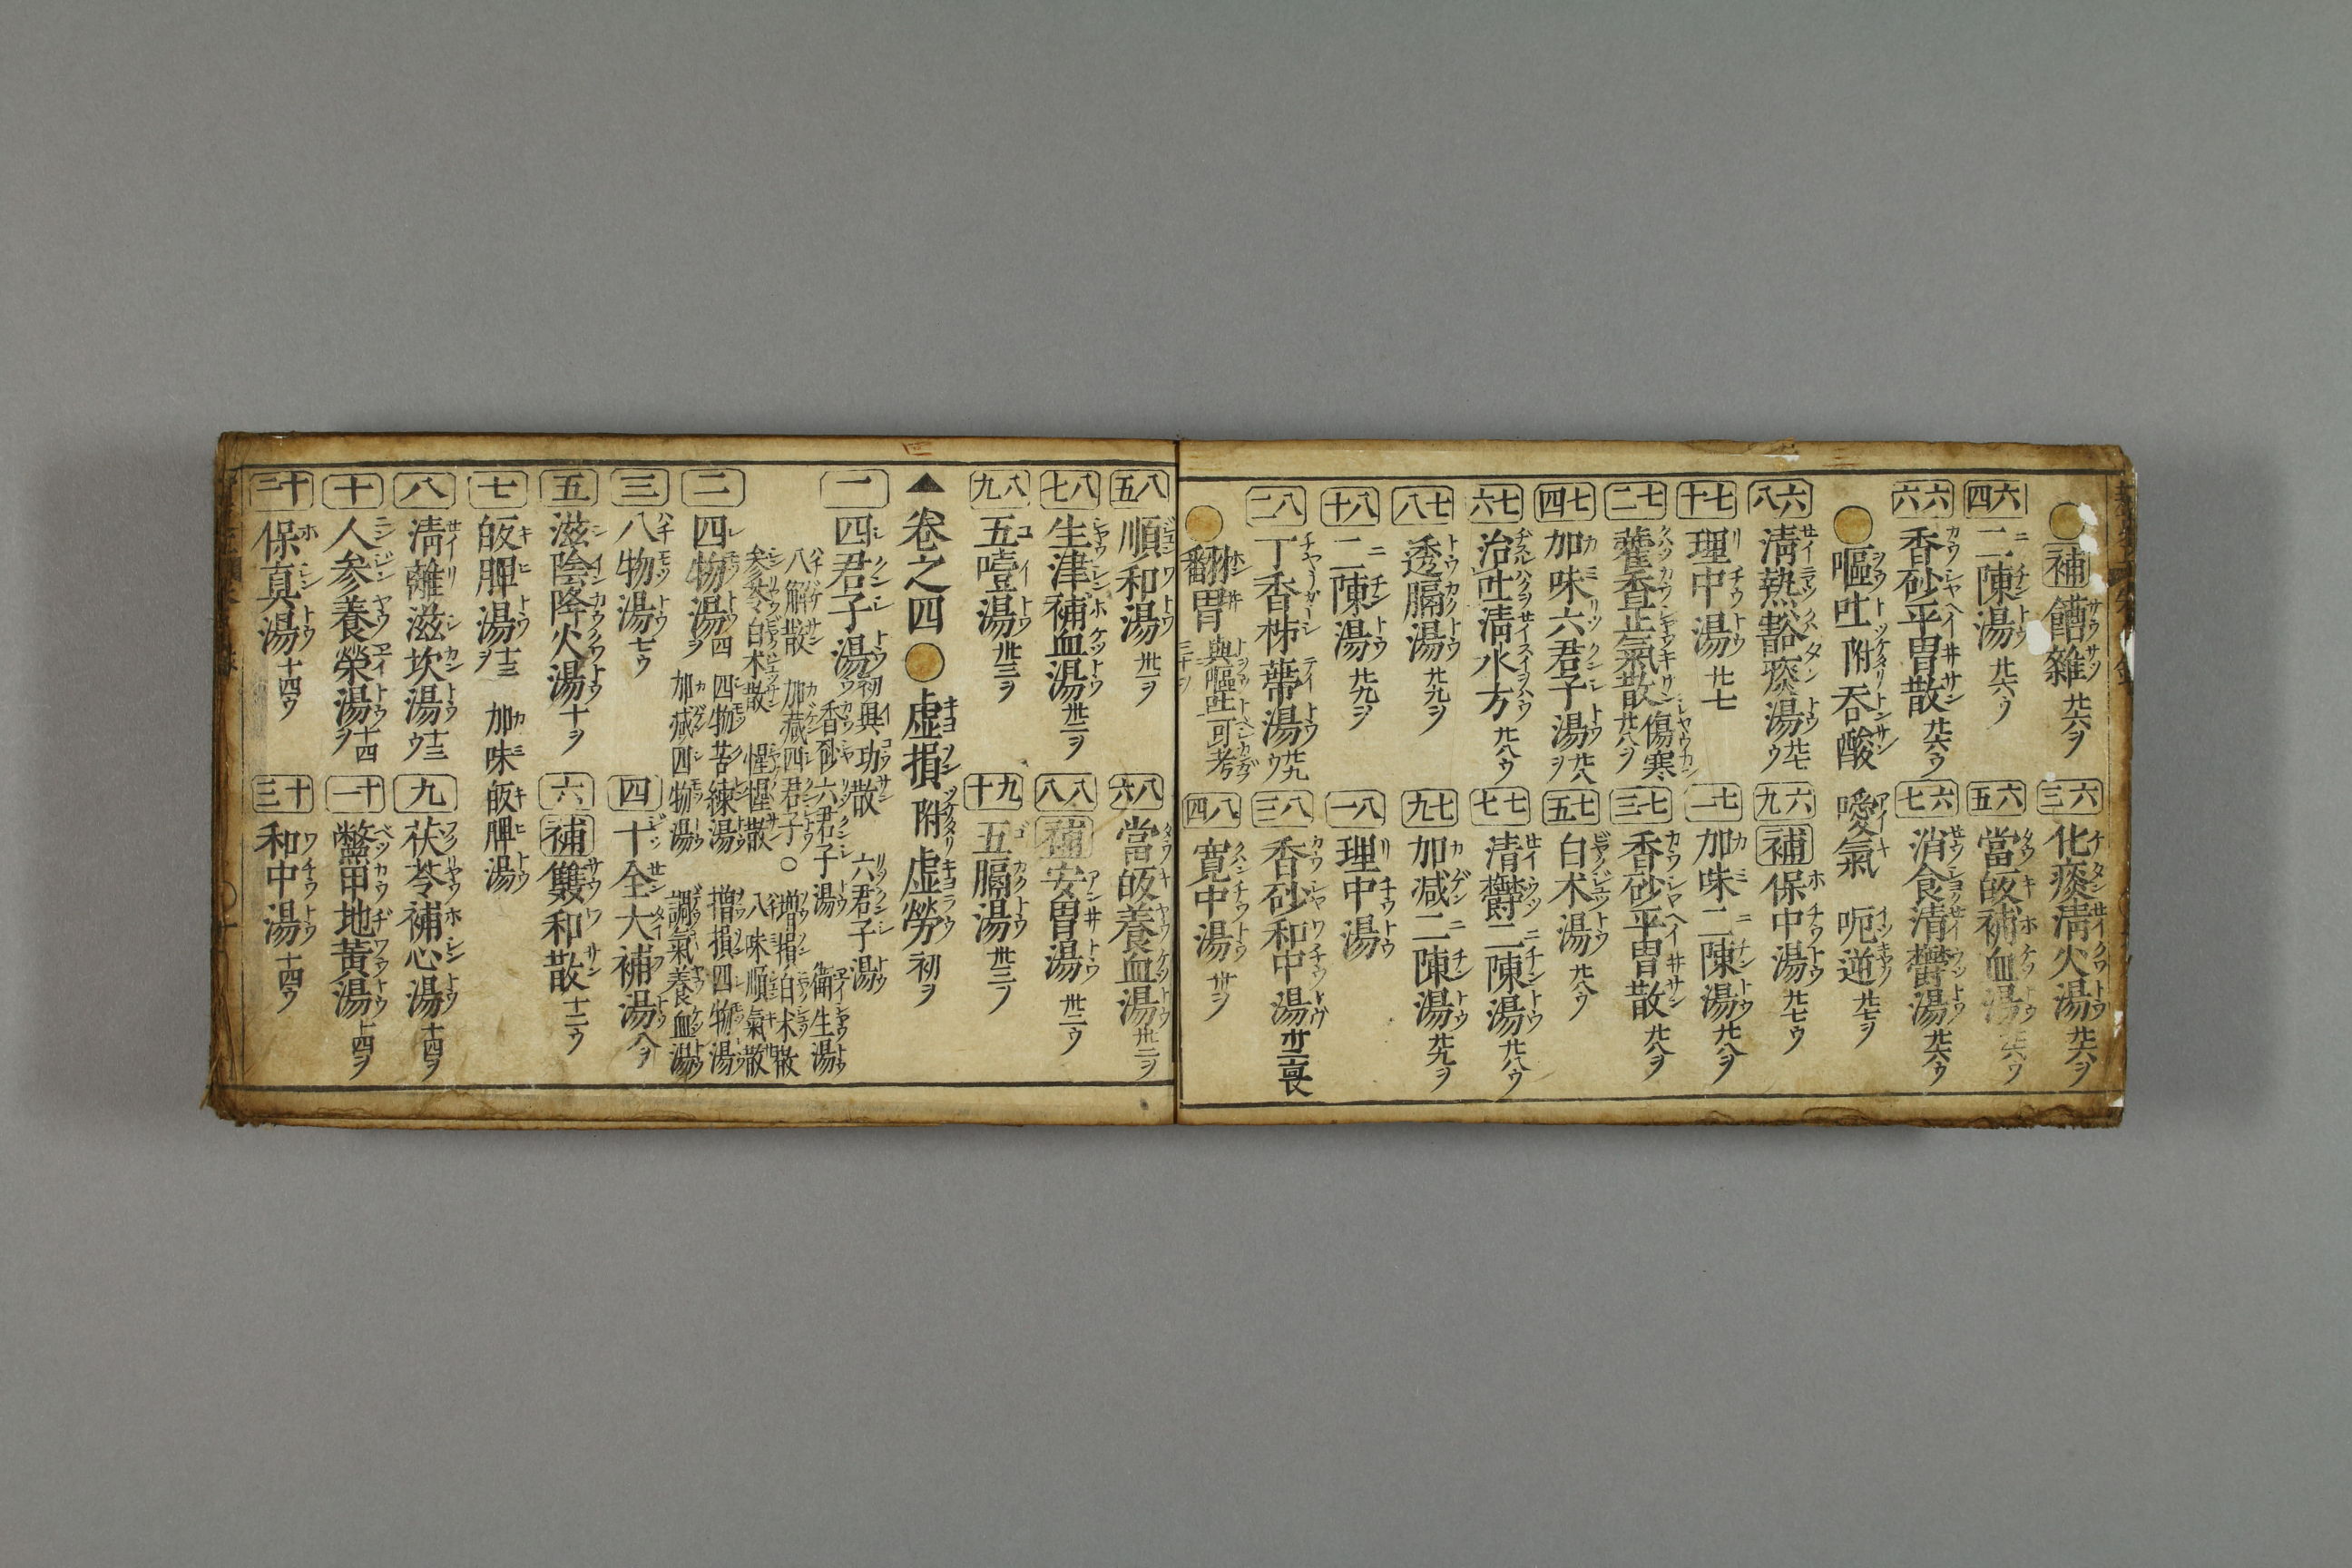 補 饍雜 廿六ヲ
六三 化痰清火湯 廿六ヲ
六四 二陳湯 廿六ウ
六五 當皈補血湯 廿六ウ
六六 香砂平胃散 廿六ウ
六七 消食清欝湯 廿六ウ
嘔吐 附 吞酸 噯氣 呃逆 廿七ヲ
六八 清熱豁痰湯 廿七ウ
六九 補 保中湯 廿七ウ
七十 理中湯 廿七
七一 加味二陳湯 廿八ヲ
七二 藿香正氣散 傷寒 廿八ヲ
七三 香砂平胃散 廿八ヲ
七四 加味六君子湯 廿八ヲ
七五 白朮湯 廿八ウ
七六 治吐清水方 廿八ウ
七七 清欝二陳湯 廿八ウ
七八 透膈湯 廿九ヲ
七九 加減二陳湯 廿九ヲ
八十 二陳湯 廿九ヲ
八一 理中湯
八二 丁香柿蒂湯 廿九ウ
八三 香砂和中湯
翻胃 與嘔吐可考 三十ヲ
八四 寛中湯
八五 順和湯 卅一ヲ
八六 當皈養血湯 卅二ヲ
八七 生津補血湯 卅二ヲ
八八 補 安胃湯 卅二ウ
八九 五噎湯 卅三ヲ
九十 五膈湯 卅三ヲ
▲卷之四 虚損 附 虚勞 初ヲ
一 四君子湯 初ウ 異功散 六君子湯
香砂六君子湯 衛生湯
八解散 加減四君子○増損白朮散
參苓白朮散 惺惺散 八味順氣散
二 四物湯 四ヲ 四物苦練湯 増損四物湯
加減四物湯 調氣養血湯
三 八物湯 七ウ
四 十全大補湯 八ヲ
五 滋陰降火湯 十ヲ
六 補 雙和散 十二ウ
七 皈脾湯 十三ヲ 加味皈脾湯
八 清離滋坎湯 十三ウ
九 茯苓補心湯 十四ヲ
十 人參養榮湯 十四ヲ
十一 鱉甲地黃湯 十四ヲ
十二 保真湯 十四ウ
十三 和中湯 十四ウ